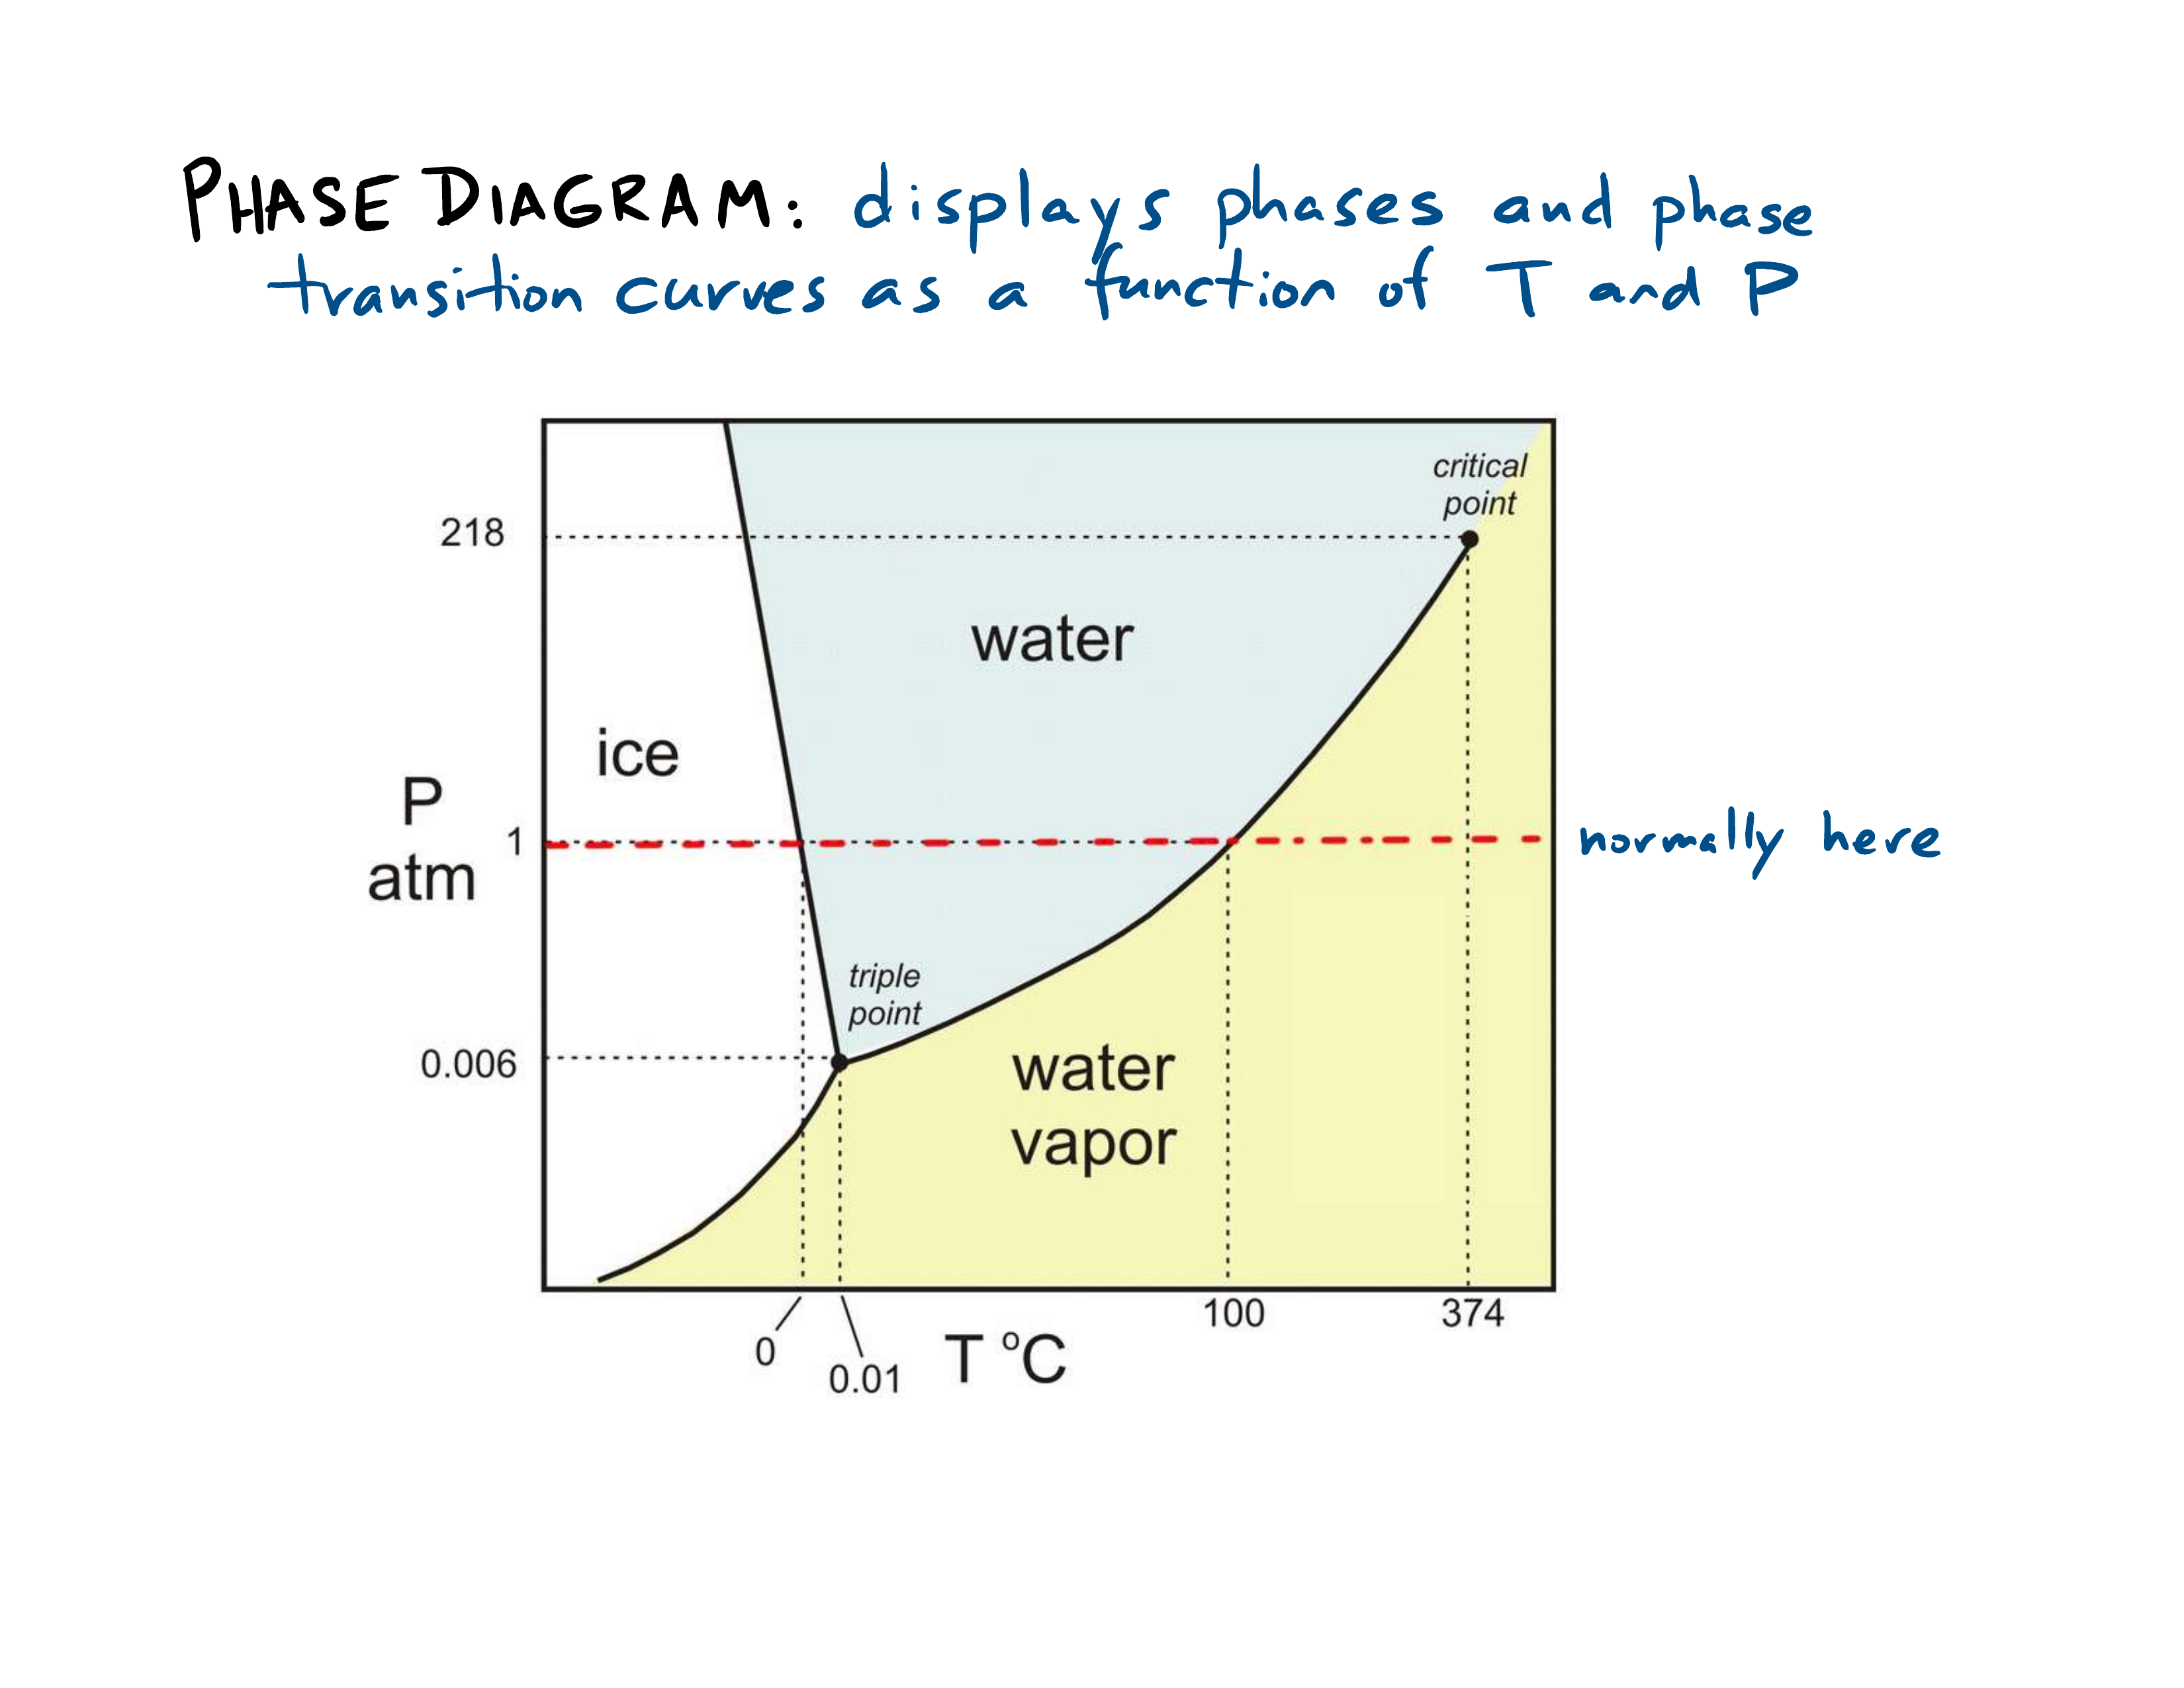 PHASE DIAGRAM: displays phases and phase
transition curves as a function of T and P
critical
point
218
water
ice
P
atm
1
normally here
triple
point
0.006
water
vapor
0
0.01
T °C
100
374